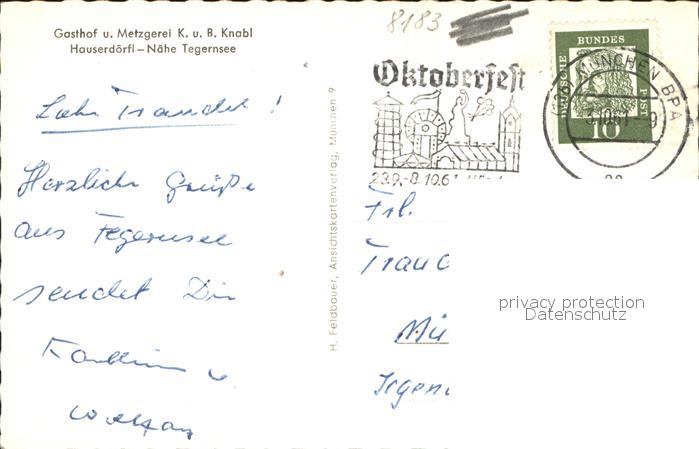 Gasthof u. Metzgerei K. u. B. Knabl
Hauserdörfl – Nähe Tegernsee
8183
Oktoberfest
23.9.-8.10.61
DEUTSCHE
BUNDES
POST
10
MÜNCHEN BPA
H. Feldbauer, Ansichtskartenverlag, München 9
Liebe Traudel !
Herzliche Grüße
aus Tegernsee
sendet Dir
u.
Wolfgang
Frl.
Traud
Mü
Tegern
privacy protection
Datenschutz